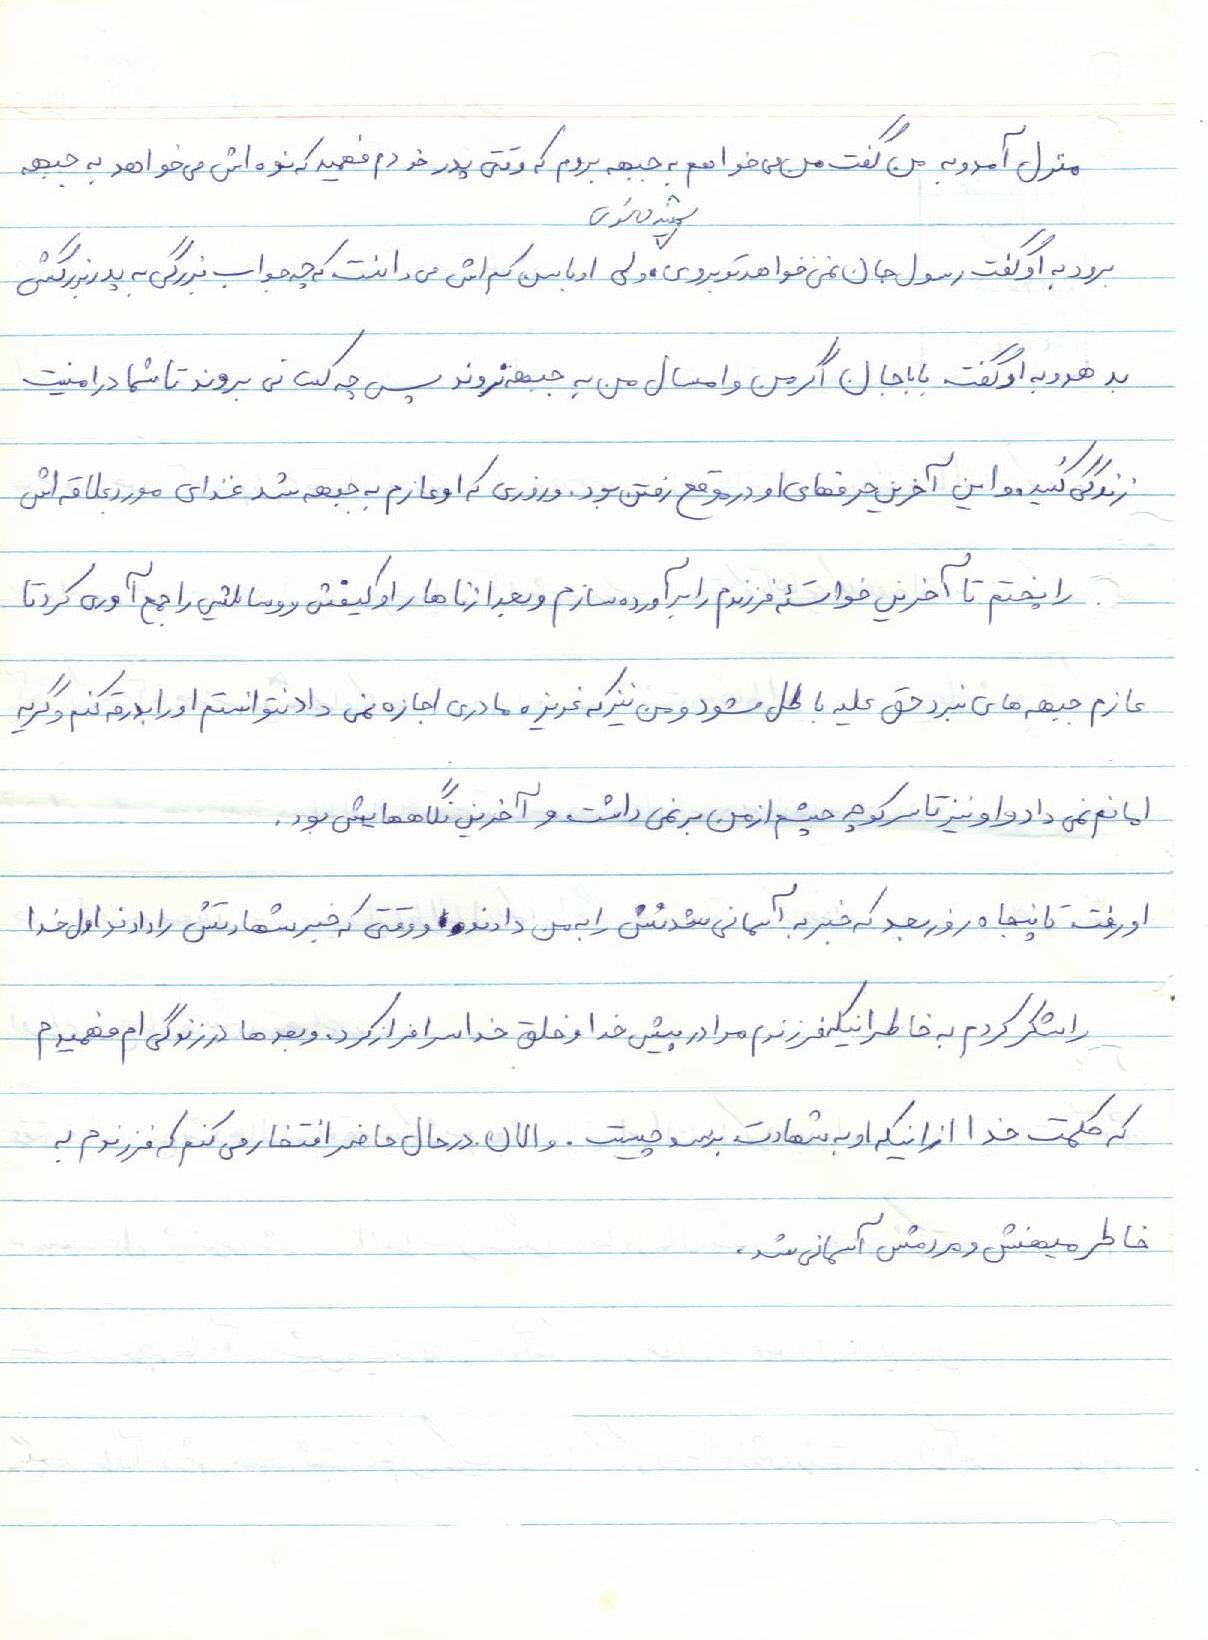 منزل آمد و به من گفت من می خواهم به جبهه بروم که وقتی پدر خودم فهمید که نوه اش می خواهد به جبهه
شهید می شوی
برود به او گفت رسول جان نمی خواهد تو بروی ولی او با سن کم اش می دانست که چه جواب بزرگی به پدربزرگش
بدهد و به او گفت باباجان اگر من و امسال من به جبهه نروند پس چه کسانی بروند تا شما در امنیت
زندگی کنید. و این آخرین حرفهای او در موقع رفتن بود. و روزی که او عازم به جبهه شد غذای مورد علاقه اش
را پختم تا آخرین خواسته فرزندم را برآورده سازم و بعد از ناهار او کیفش و وسائلش را جمع آوری کرد تا
عازم جبهه های نبرد حق علیه باطل شود و من نیز که غریزه مادری اجازه نمی داد نتوانستم او را بدرقه کنم و گریه
امانم نمی داد و او نیز تا سر کوچه چشم از من بر نمی داشت و آخرین نگاههایش بود.
او رفت تا پنجاه روز بعد که خبر به آسمانی شدنش را به من دادند و وقتی که خبر شهادتش را دادند اول خدا
را شکر کردم به خاطر اینکه فرزندم مرا در پیش خدا و خلق خدا سرافراز کرد. و بعدها در زندگی ام فهمیدم
که حکمت خدا از اینکه او به شهادت برسد چیست. و الان در حال حاضر افتخار می کنم که فرزندم به
خاطر میهنش و مردمش آسمانی شد.